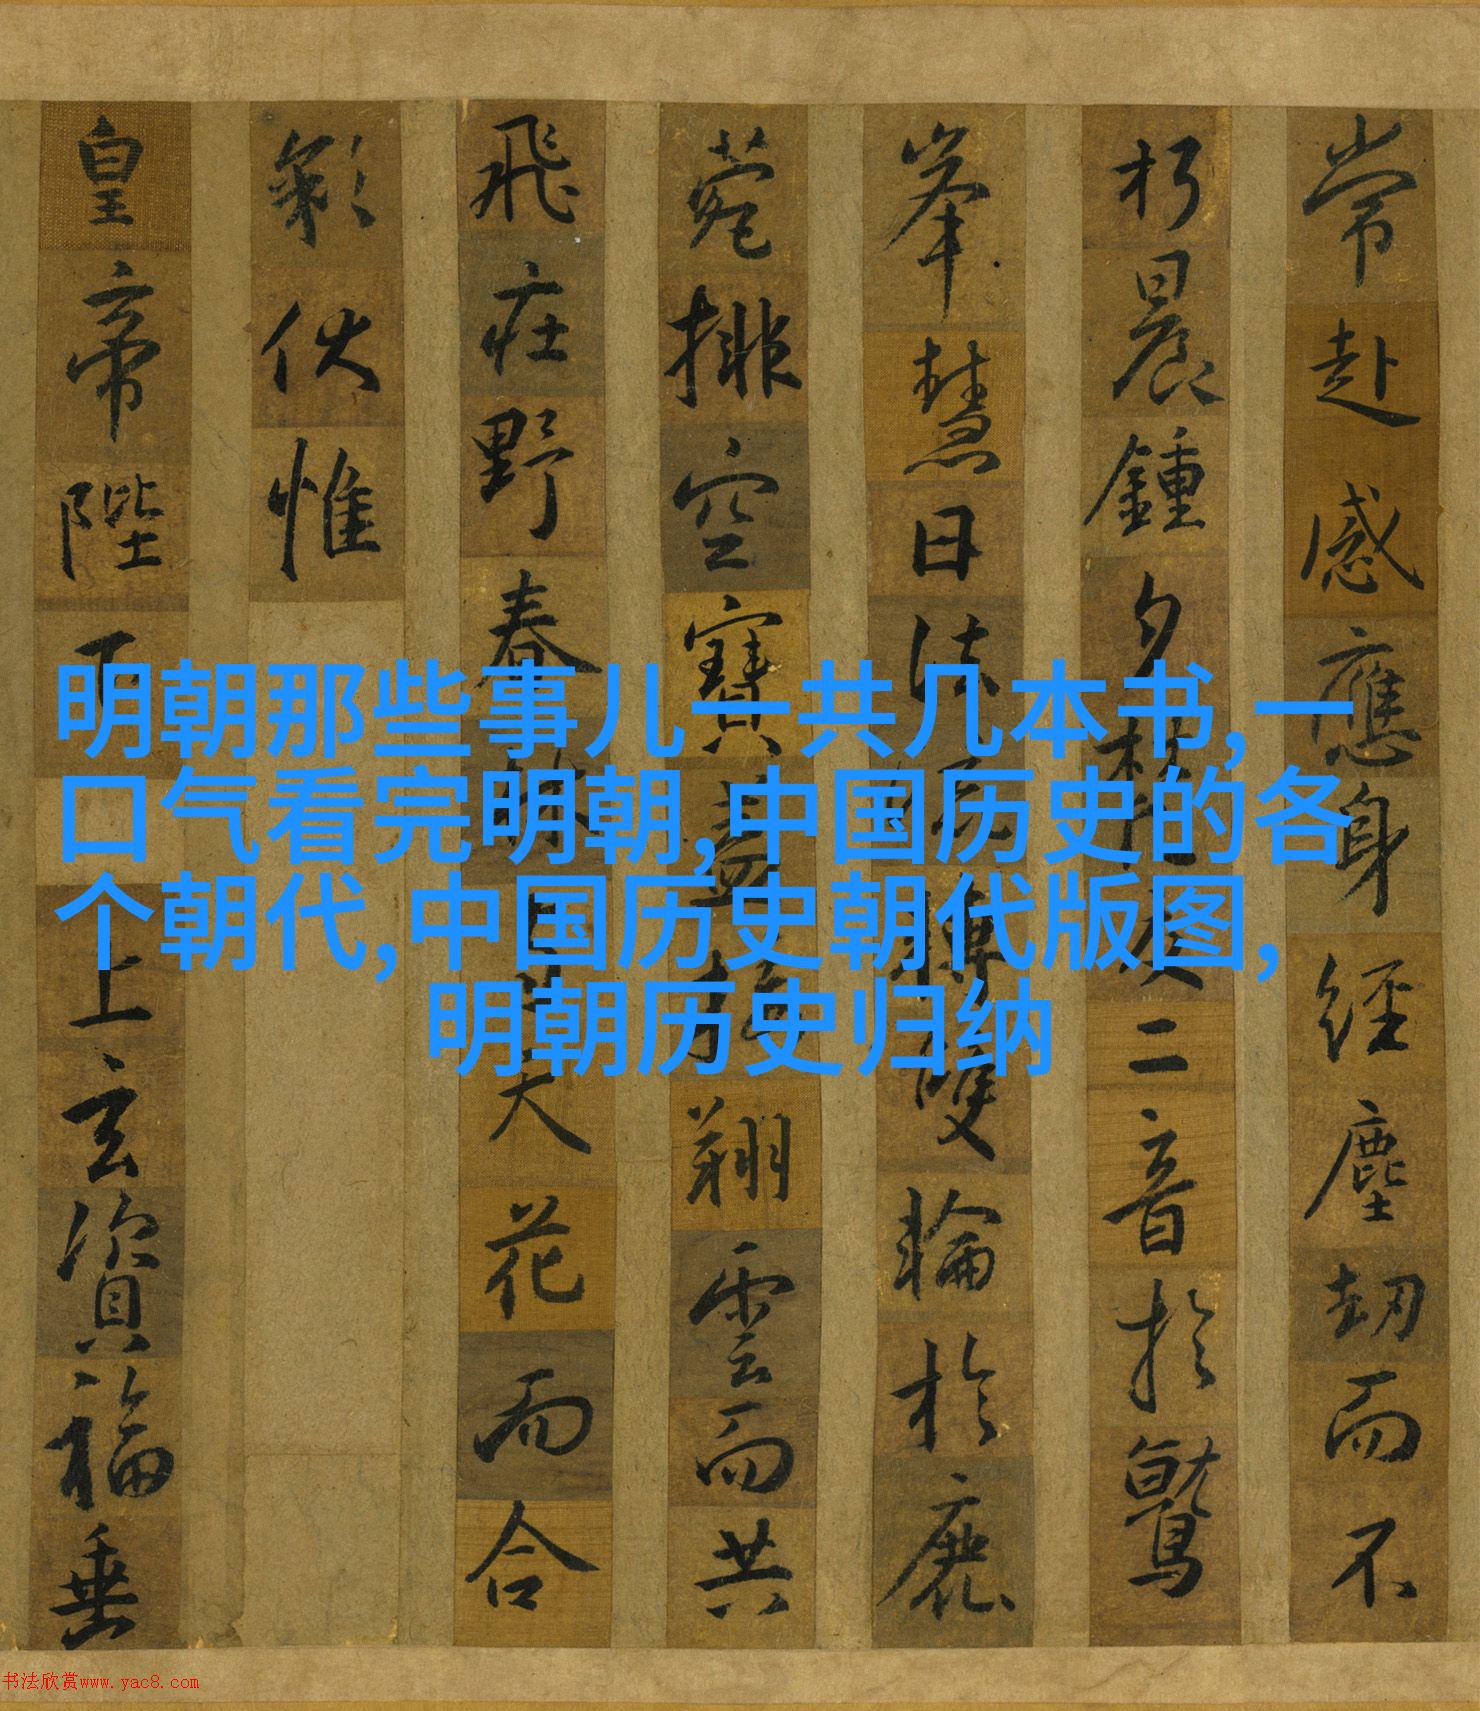 明朝那些事儿一共几本书,一
口气看完明朝,中国历史的各
个朝代,中国历史朝代版图,
明朝历史归纳
常赴感應身經塵劫而不
朽晨鍾夕梵交二音於鷲
峯慧日法流轉雙輪於鹿
菀排空寶蓋接翔雲而共
飛莊野春林與天花而合
彩伏惟
皇帝陛下上玄資福垂
书法欣赏www.yac8.com